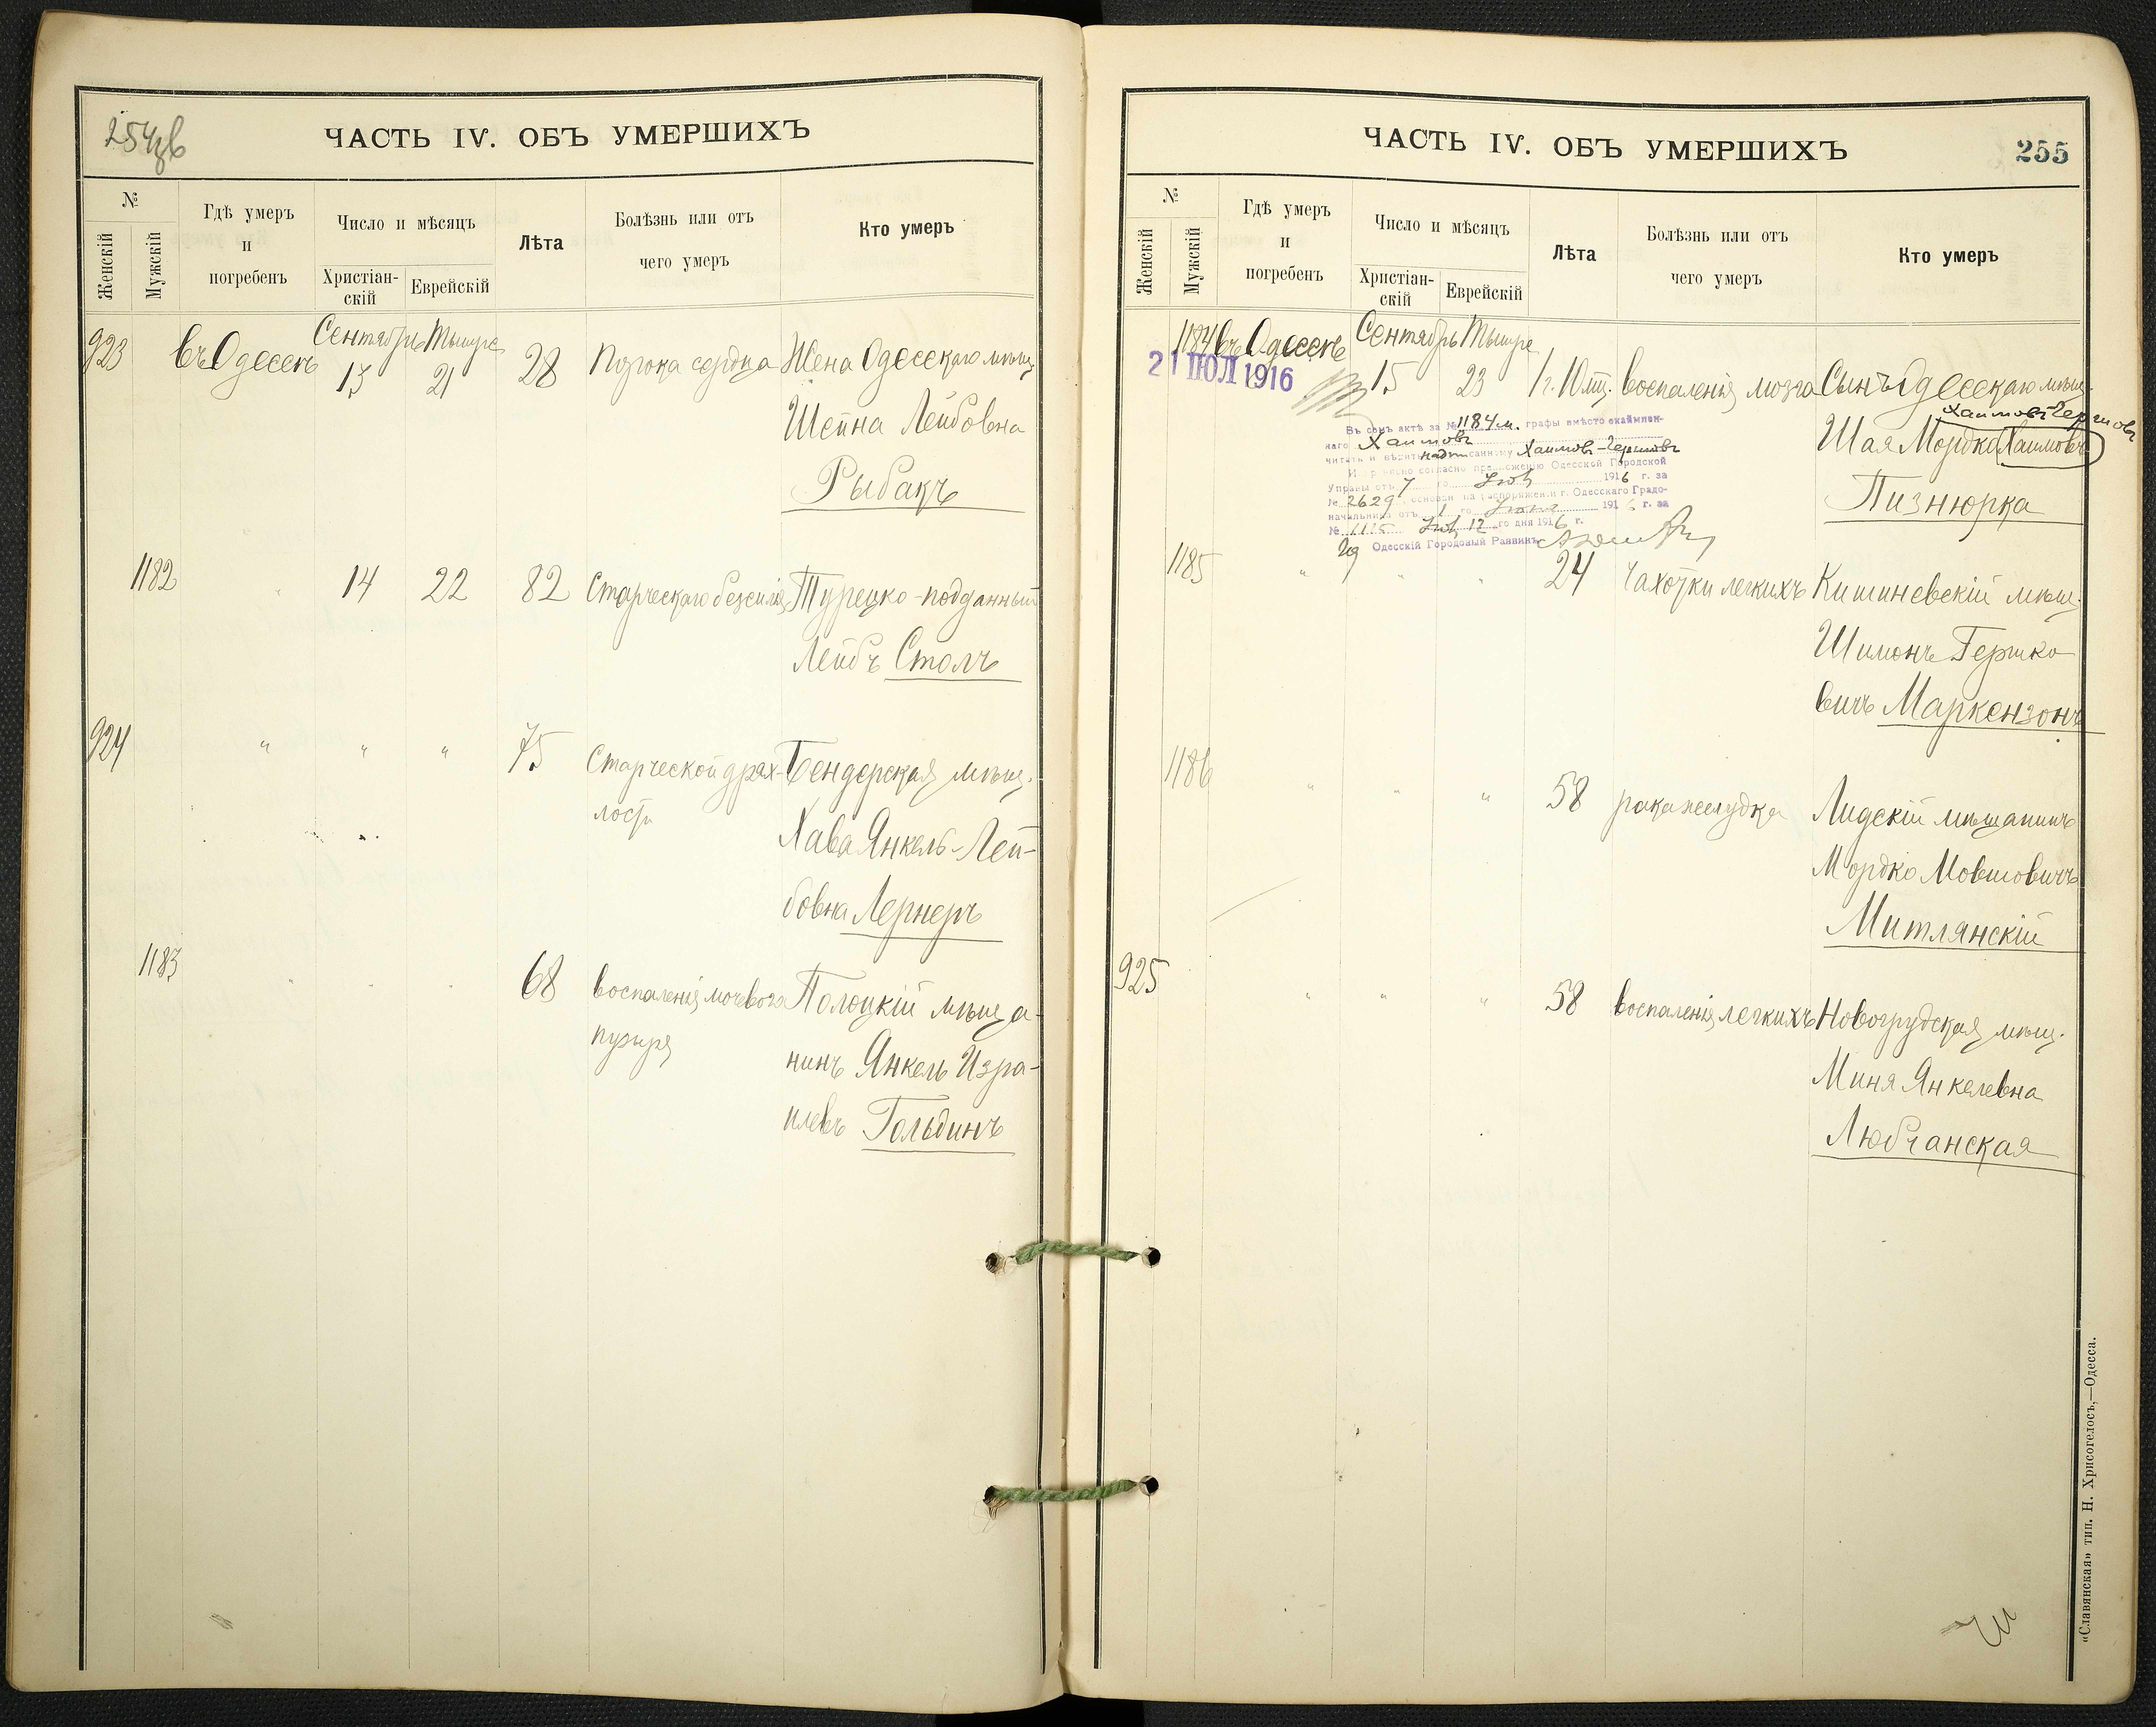 254 об
ЧАСТЬ IV. ОБЪ УМЕРШИХЪ
№
Женскій
Мужскій
Гдѣ умеръ
и
погребенъ
Число и мѣсяцъ
Христіан-
скій
Еврейскій
Лѣта
Болѣзнь или отъ
чего умеръ
Кто умеръ
923 въ Одессѣ Сентябрь Тишре
13 21 28 Порока сердца Жена Одесскаго мѣщ.
Шейна Лейбовна
Рыбакъ
1182 " 14 22 82 Старческаго безсилія Турецко-подданный
Лейбъ Столъ
924 " " " 75 Старческой дрях- Бендерская мѣщ.
лости
Хава Янкель-Лей-
бовна Лернеръ
1183 " " " 68 воспаленія мочевого Полоцкій мѣща-
пузыря
нинъ Янкель Изра-
илевъ Гольдинъ
ЧАСТЬ IV. ОБЪ УМЕРШИХЪ
255
№
Женскій
Мужскій
Гдѣ умеръ
и
погребенъ
Число и мѣсяцъ
Христіан-
скій
Еврейскій
Лѣта
Болѣзнь или отъ
чего умеръ
Кто умеръ
1184 въ Одессѣ Сентябрь Тишре
21 ІЮЛ 1916
15 23 1 г. 10 мц. воспаленія мозга Сынъ Одесскаго мѣщ.
Хаимовъ-Гершовъ
Шая Мордко Хаимовъ
Пизнюрка
Въ семъ актѣ за № 1184 м. графы вмѣсто окаймлен-
наго Хаимовъ
читать и вѣрить надписанному Хаимовъ-Гершовъ
согласно предложенію Одесской Городской
Управы отъ 7 го 1916 г. за
№ 2629 основан. на распоряженіи г. Одесскаго Градо-
начальника отъ 1 го 1916 г. за
№ 12 го дня 1916 г.
Одесскій Городовый Раввинъ
1185 " " " 24 Чахотки легкихъ Кишиневскій мѣщ.
Шимонъ Гершко
вичъ Маркензонъ
1186 " " " 58 рака желудка Лидскій мѣщанинъ
Мордко Мовшовичъ
Митлянскій
925 " " " 58 воспаленія легкихъ Новогрудская мѣщ.
Миня Янкелевна
Любчанская
«Славянская» тип. Н. Хрисогелосъ,—Одесса.